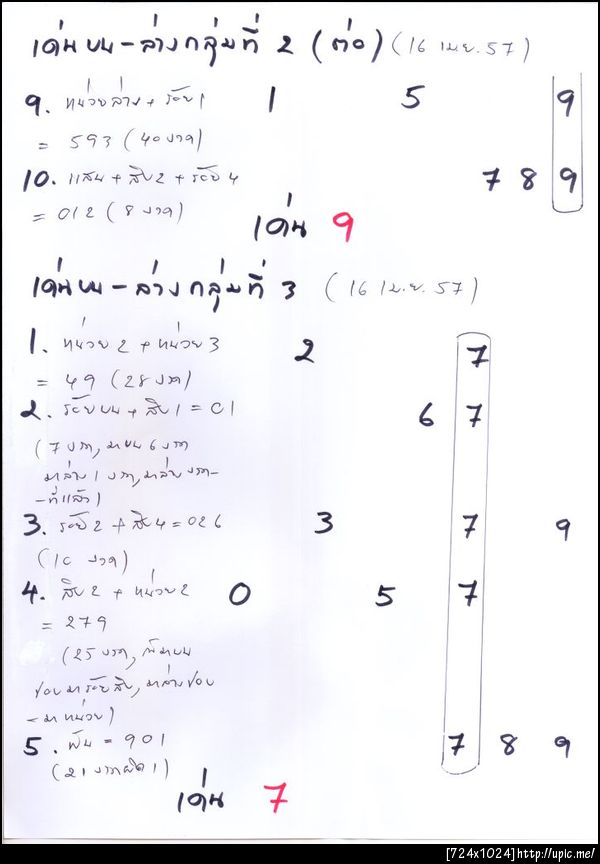 เด่นบน-ล่างกลุ่มที่ 2 (ต่อ) (16 เมย. 57)
9. หน่วยล่าง + ร้อย 1 1 5 9
= 593 (40 งวด)
10. แสน + สิบ2 + ร้อย 4 7 8 9
= 012 (8 งวด)
เด่น 9
เด่นบน-ล่างกลุ่มที่ 3 (16 เม.ย. 57)
1. หน่วย 2 + หน่วย 3 2 7
= 49 (28 งวด)
2. ร้อยบน + สิบ 1 = 01 6 7
(7 งวด, มาบน 6 งวด
มาล่าง 1 งวด, มาล่างงวด-
-ที่แล้ว)
3. ร้อย 2 + สิบ 4 = 026 3 7 9
(10 งวด)
4. สิบ 2 + หน่วย 2 0 5 7
= 279
(25 งวด, ถ้ามาบน
ชอบมาร้อยสิบ, มาล่างชอบ
-มาหน่วย)
5. พัน = 901 7 8 9
(21 งวดผิด 1)
เด่น 7
[724x1024]http://upic.me/